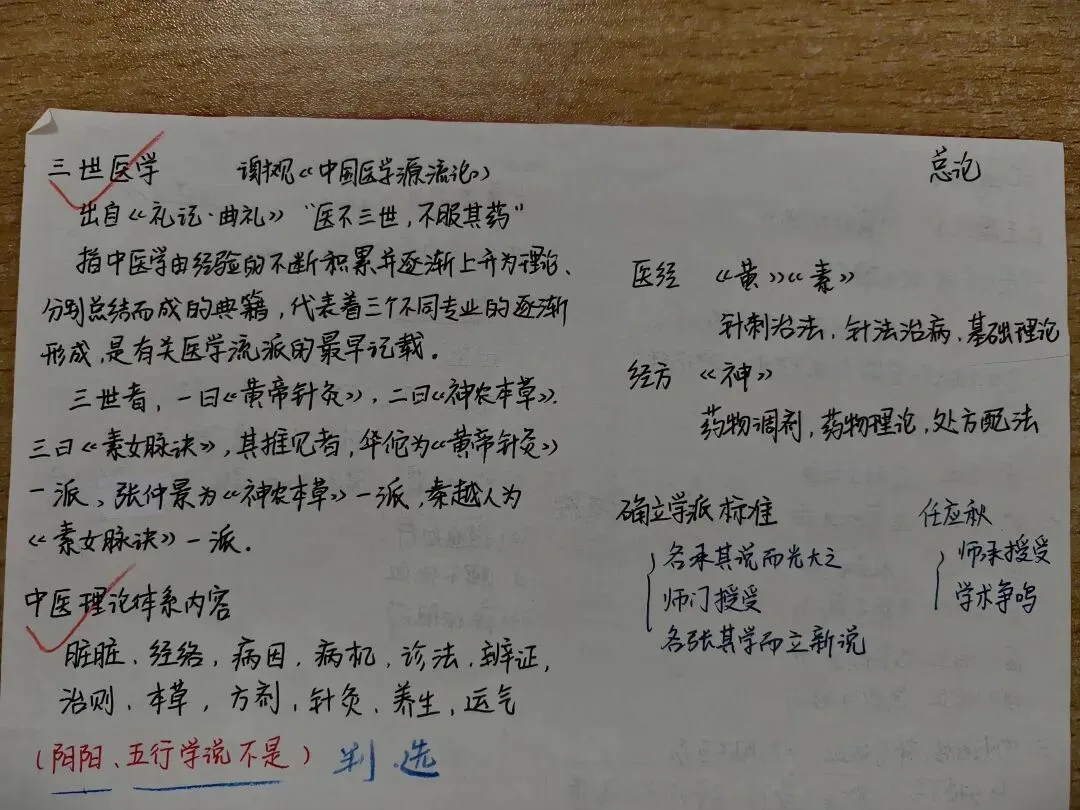 三世医学 谢观《中国医学源流论》
总论
出自《礼记·曲礼》 "医不三世，不服其药"
指中医学由经验的不断积累并逐渐上升为理论、
分别总结而成的典籍，代表着三个不同专业的逐渐
形成，是有关医学流派的最早记载。
三世者，一曰《黄帝针灸》，二曰《神农本草》.
三曰《素女脉诀》，其推见者，华佗为《黄帝针灸》
一派、张仲景为《神农本草》一派，秦越人为
《素女脉诀》一派.
中医理论体系内容
脏脏、经络，病因，病机，诊法，辨证，
治则，本草，方剂，针灸、养生，运气
(阴阳、五行学说不是) 判.选
医经 《黄》《素》
针刺治法，针法治病，基础理论
经方 《神》
药物调剂，药物理论，处方配法
确立学派标准
各承其说而光大之
师门授受
各张其学而立新说
任应秋
师承授受
学术争鸣